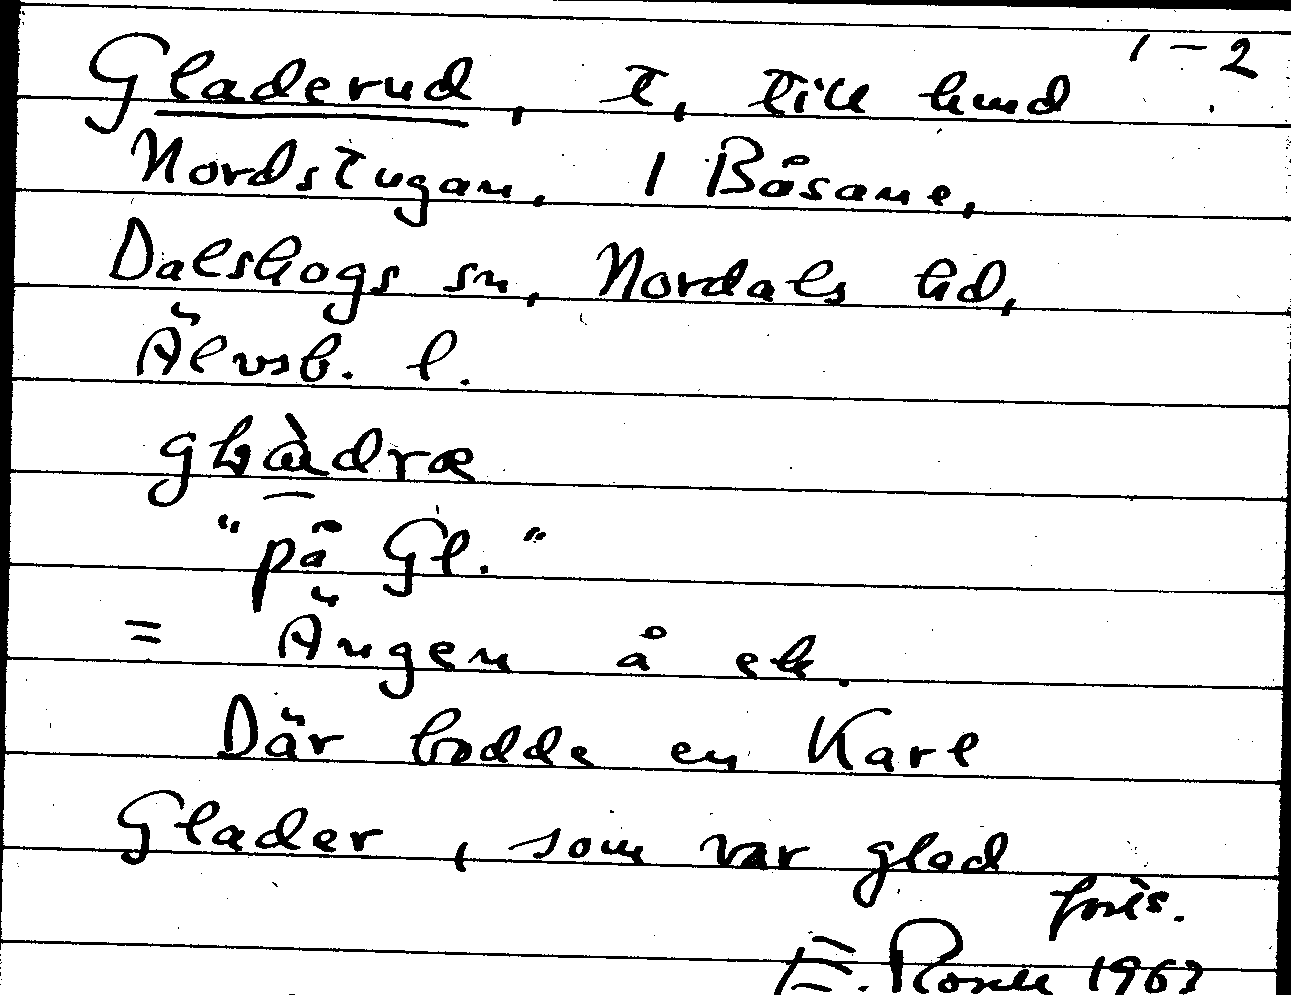 1-2
Gladerud, t, till hmd
Nordstugan, 1 Båsane,
Dalskogs sn, Nordals hd,
Älvsb. l.
"på Gl."
= Ängen å ek.
Där bodde en Karl
Glader, som var glad
forts.
E. 1963